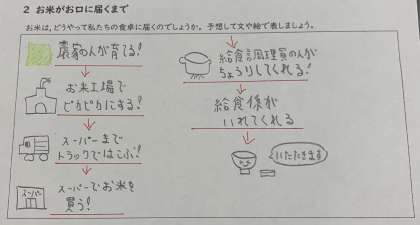 2 お米がお口に届くまで
お米は、どうやって私たちの食卓に届くのでしょうか。予想して文や絵で表しましょう。
農家の人が育てる!
お米工場で
ピカピカにする!
スーパーまで
トラックではこぶ!
スーパー
スーパーでお米を
買う!
給食調理員の人が
ちょうりしてくれる!
給食係が
いれてくれる
いただきます